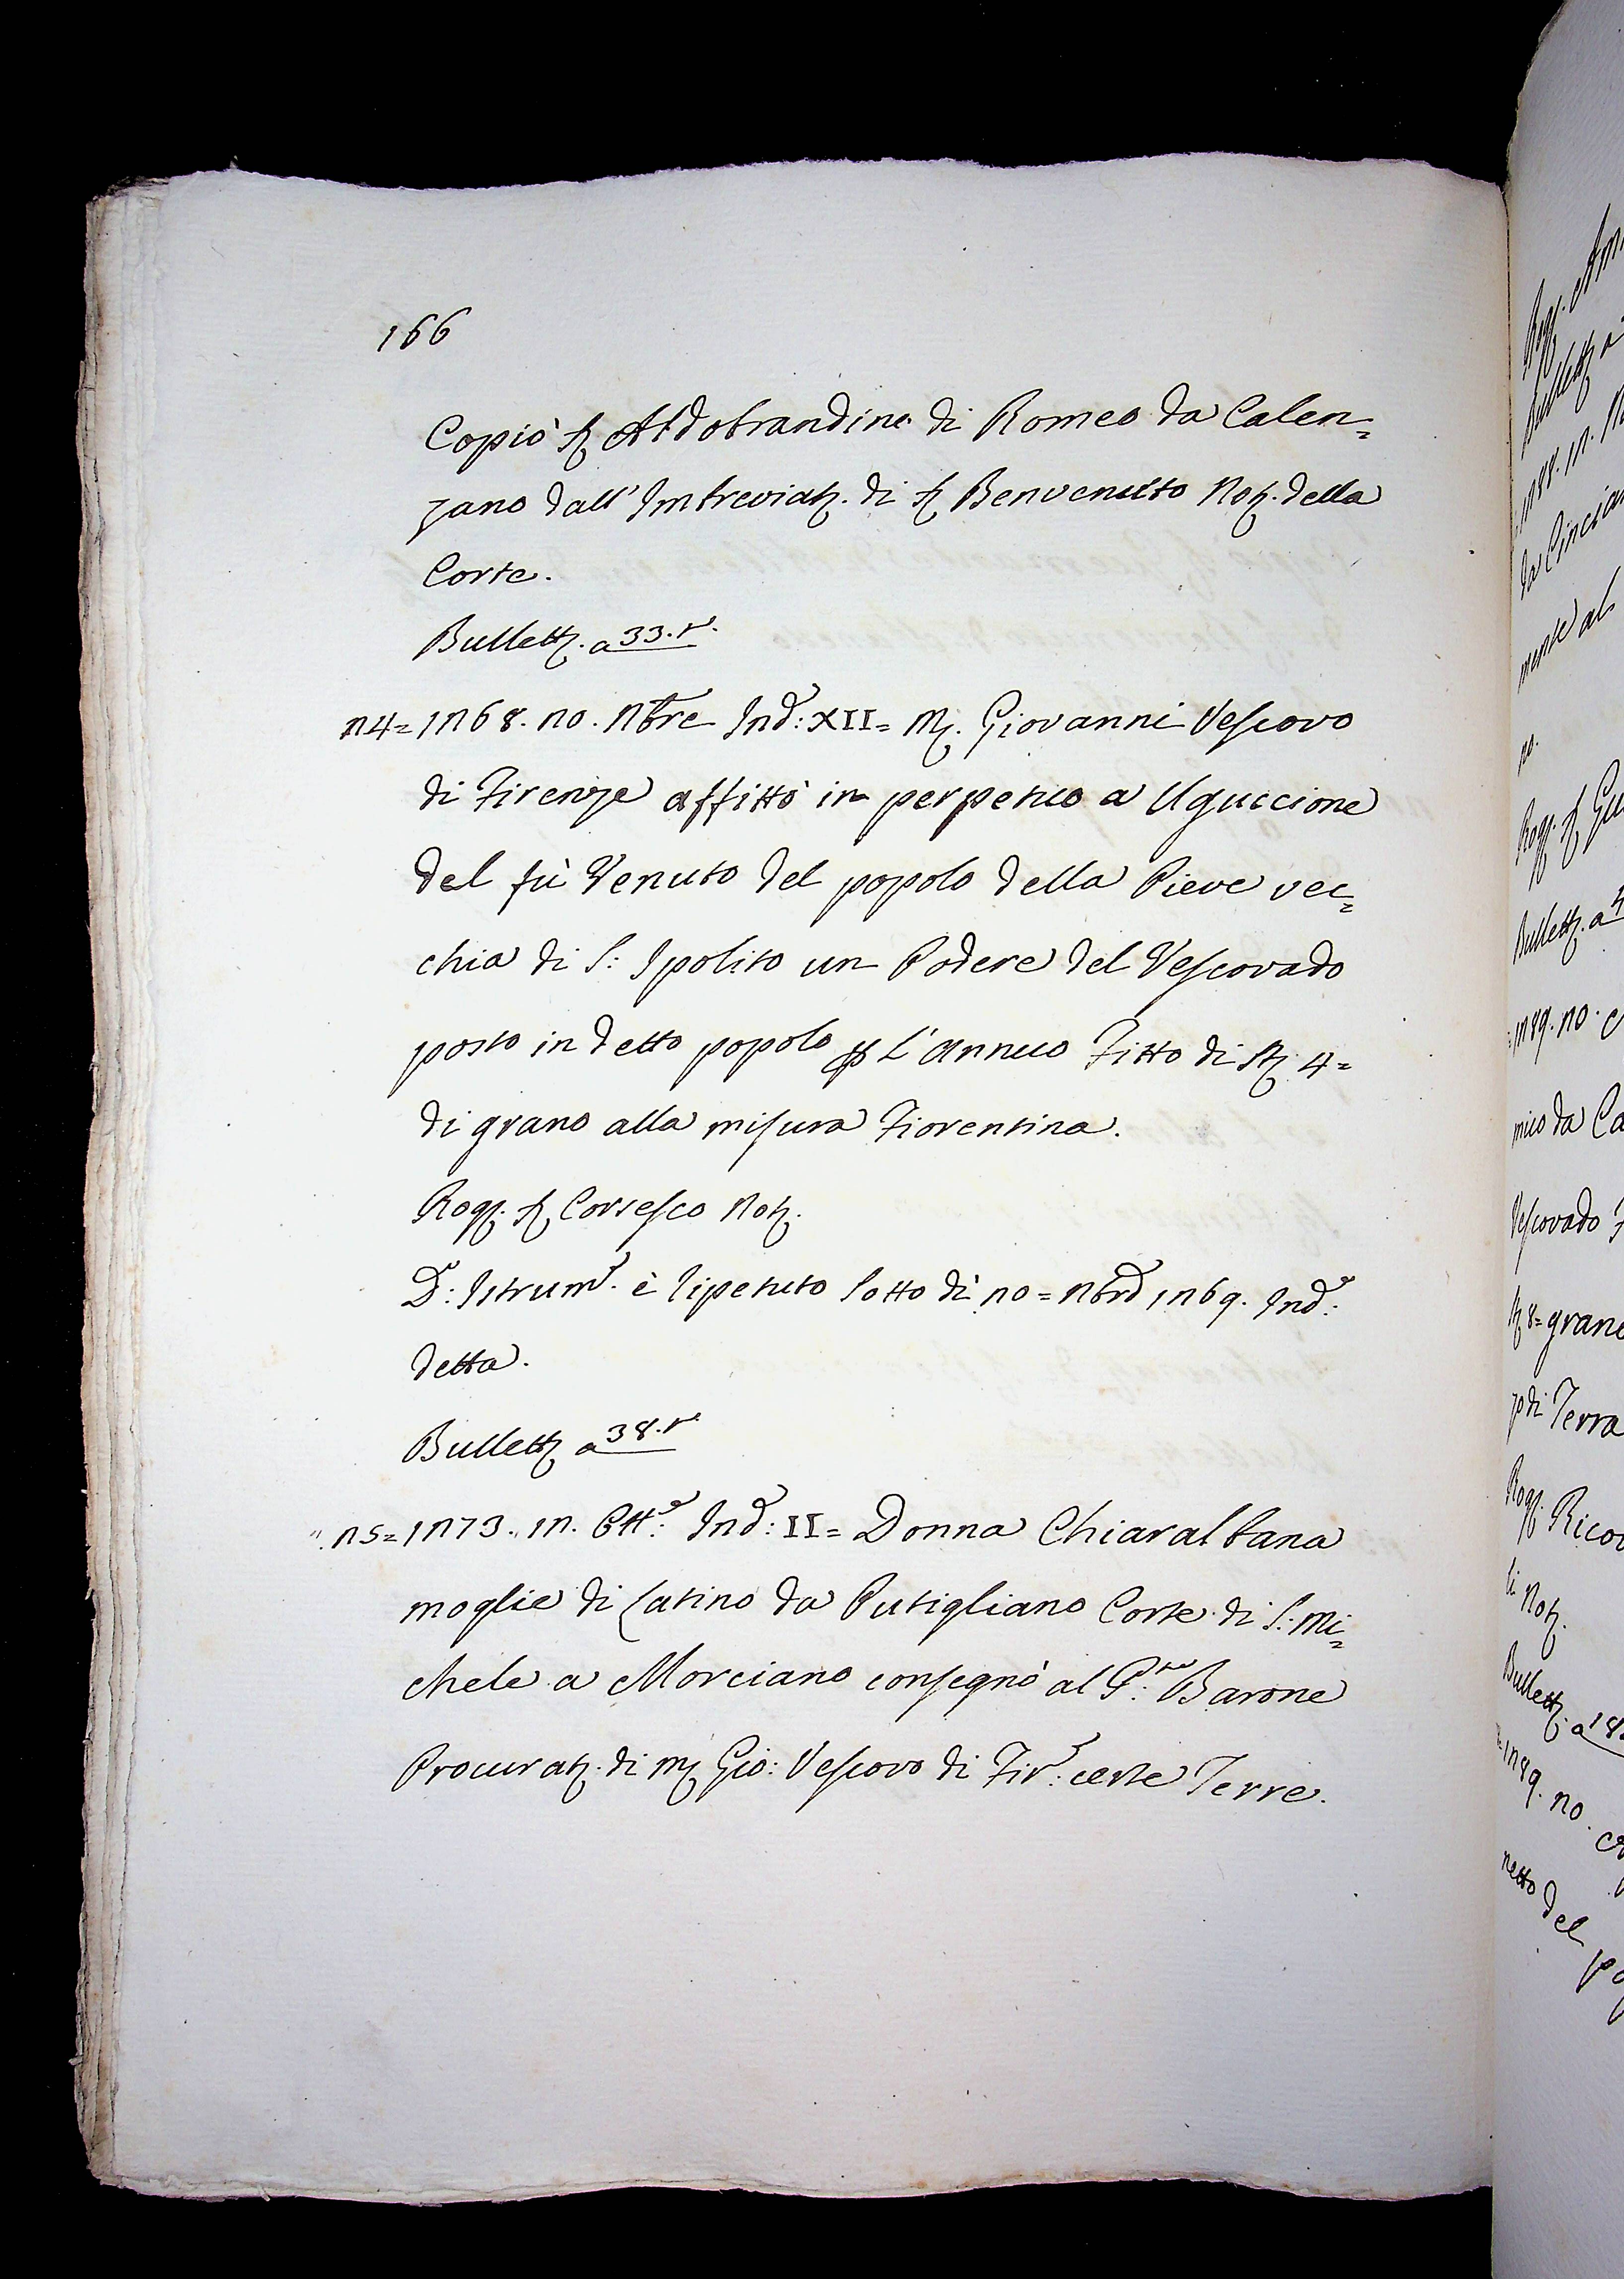 166
Copiò S. Aldobrandino di Romeo da Calen=
zano dall' Imbreviat. di S. Benvenuto Not. della
Corte.
Bullett. a 33. t.
24= 1268. 20. Nbre Ind: XII= M. Giovanni Vescovo
di Firenze affittò in perpetuo a Uguccione
del fù Venuto del popolo della Pieve vec=
chia di S: Ipolito un Podere del Vescovado
posto in detto popolo p L'annuo Fitto di St. 4=
di grano alla misura Fiorentina.
Rog. S. Corsesco Not.
D: Istrum. è ripetuto sotto dì 20= Nbre 1269. Ind:
detta.
Bullett. a 38. t.
25= 1273. 12. Ott: Ind: II= Donna Chiaralbana
moglie di Catino da Putigliano Corte di S: Mi=
chele a Morciano consegnò al Barone
Procurat. di M. Gio: Vescovo di Fir: certe Terre.
Bullett. a
da
mente al
no.
Rog. S. Gui
Bullett. a
1289. 20.
mico da Ca
Vescovado
8= grano
zo di Terra
Rog. Rico
li Not.
Bullett. a
1289. 20.
netto del